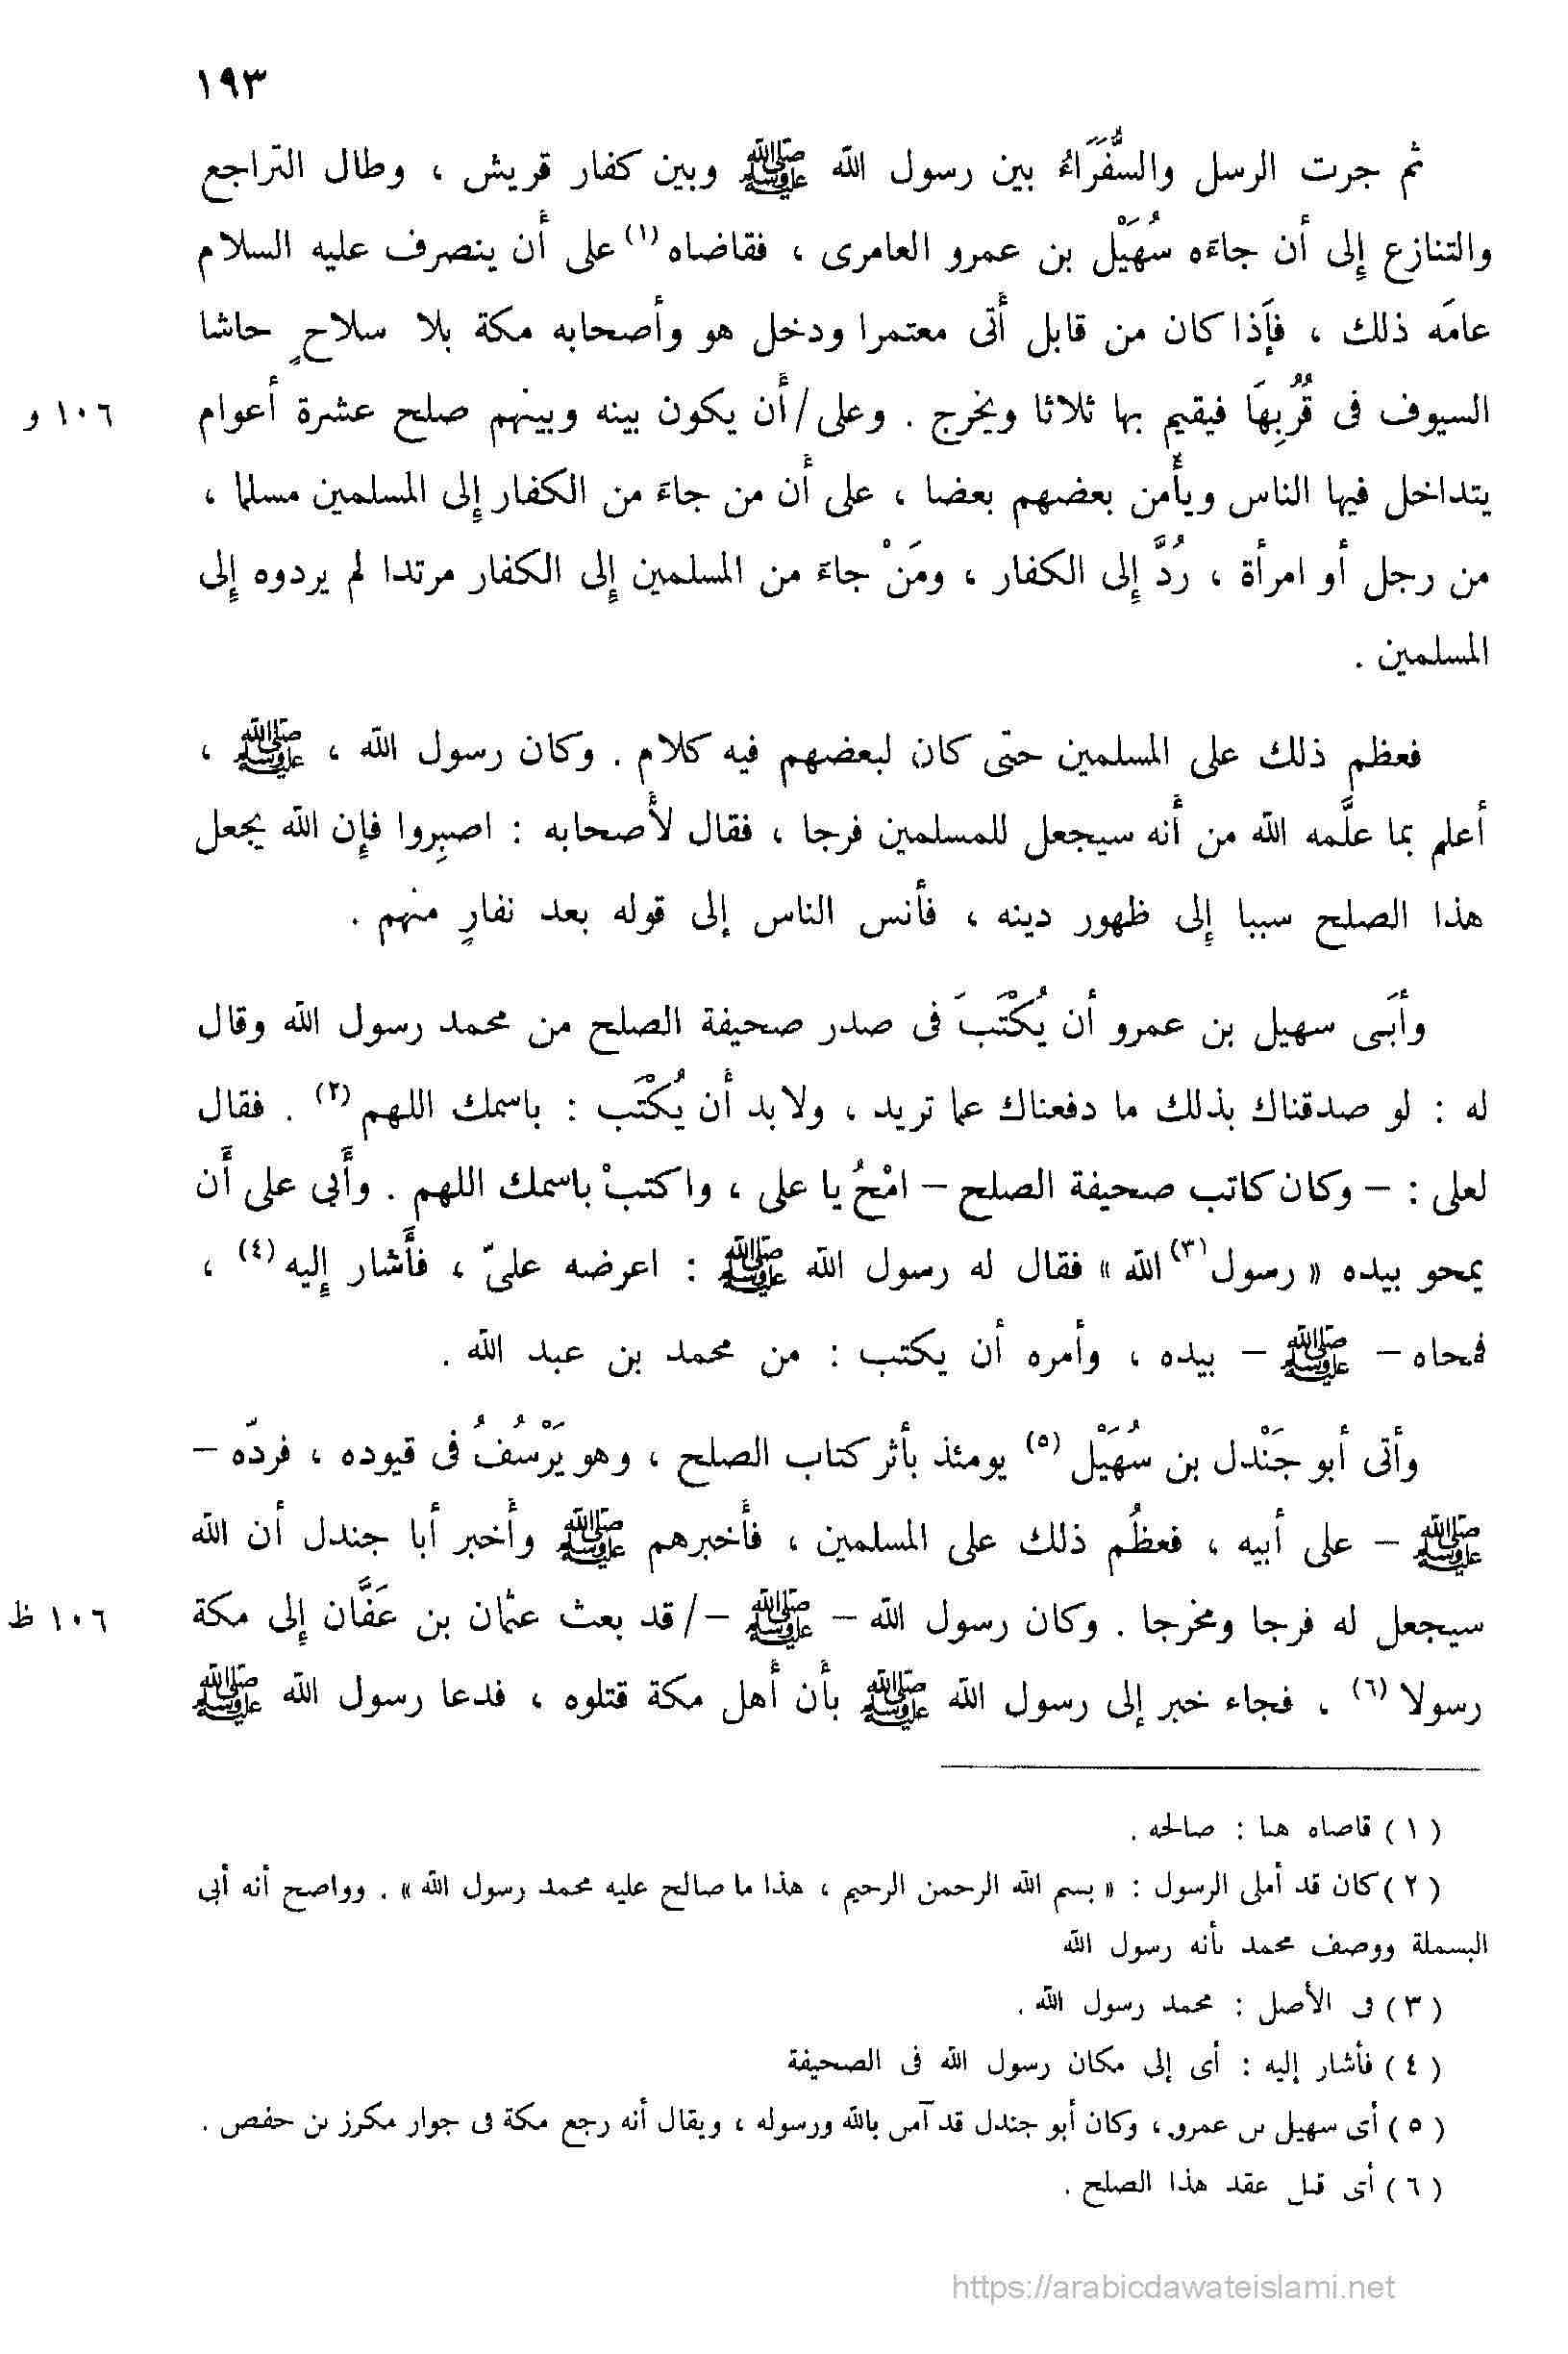 ١٩٣
ثم جرت الرسل والسُّفَرَاءُ بين رسول الله ﷺ وبين كفار قريش ، وطال التراجع
والتنازع إلى أن جاءَه سُهَيْل بن عمرو العامرى ، فقاضاه (١) على أن ينصرف عليه السلام
عامَه ذلك ، فإذا كان من قابل أَتى معتمرا ودخل هو وأصحابه مكة بلا سلاحٍ حاشا
السيوف فى قُرُبِهَا فيقيم بها ثلاثا ويخرج . وعلى / أن يكون بينه وبينهم صلح عشرة أعوام ١٠٦ و
يتداخل فيها الناس ويأْمن بعضهم بعضا ، على أن من جاءَ من الكفار إلى المسلمين مسلما ،
من رجل أو امرأة ، رُدَّ إلى الكفار ، ومَنْ جاءَ من المسلمين إلى الكفار مرتدا لم يردوه إلى
المسلمين .
فعظم ذلك على المسلمين حتى كان لبعضهم فيه كلام . وكان رسول الله ، ﷺ ،
أعلم بما علَّمه الله من أنه سيجعل للمسلمين فرجا ، فقال لأصحابه : اصبِروا فإن الله يجعل
هذا الصلح سببا إلى ظهور دينه ، فأنس الناس إلى قوله بعد نفارٍ منهم .
وأبَى سهيل بن عمرو أن يُكْتَبَ فى صدر صحيفة الصلح من محمد رسول الله وقال
له : لو صدقناك بذلك ما دفعناك عما تريد ، ولا بد أن يُكْتَب : باسمك اللهم (٢) . فقال
لعلى : – وكان كاتب صحيفة الصلح – امْحُ يا على ، واكتبْ باسمك اللهم . وأَبى على أَن
يمحو بيده « رسول (٣) الله » فقال له رسول الله ﷺ : اعرضه علىّ ، فأَشار إليه (٤) ،
فمحاه – ﷺ – بيده ، وأمره أن يكتب : من محمد بن عبد الله .
وأتى أبو جَنْدل بن سُهَيْل (٥) يومئذ بأثر كتاب الصلح ، وهو يَرْسُفُ فى قيوده ، فردّه –
ﷺ – على أبيه ، فعظُم ذلك على المسلمين ، فأخبرهم ﷺ وأَخبر أبا جندل أن الله
سيجعل له فرجا ومخرجا . وكان رسول الله – ﷺ – / قد بعث عثمان بن عَفَّان إلى مكة ١٠٦ ظ
رسولا (٦) ، فجاء خبر إلى رسول الله ﷺ بأن أهل مكة قتلوه ، فدعا رسول الله ﷺ
(١) قاضاه هنا : صالحه .
(٢) كان قد أملى الرسول : « بسم الله الرحمن الرحيم ، هذا ما صالح عليه محمد رسول الله » . وواضح أنه أبى
البسملة ووصف محمد بأنه رسول الله
(٣) فى الأصل : محمد رسول الله .
(٤) فأشار إليه : أى إلى مكان رسول الله فى الصحيفة
(٥) أى سهيل بن عمرو ، وكان أبو جندل قد آمن بالله ورسوله ، ويقال أنه رجع مكة فى جوار مكرز بن حفص .
(٦) أى قبل عقد هذا الصلح .
https://arabicdawateislami.net